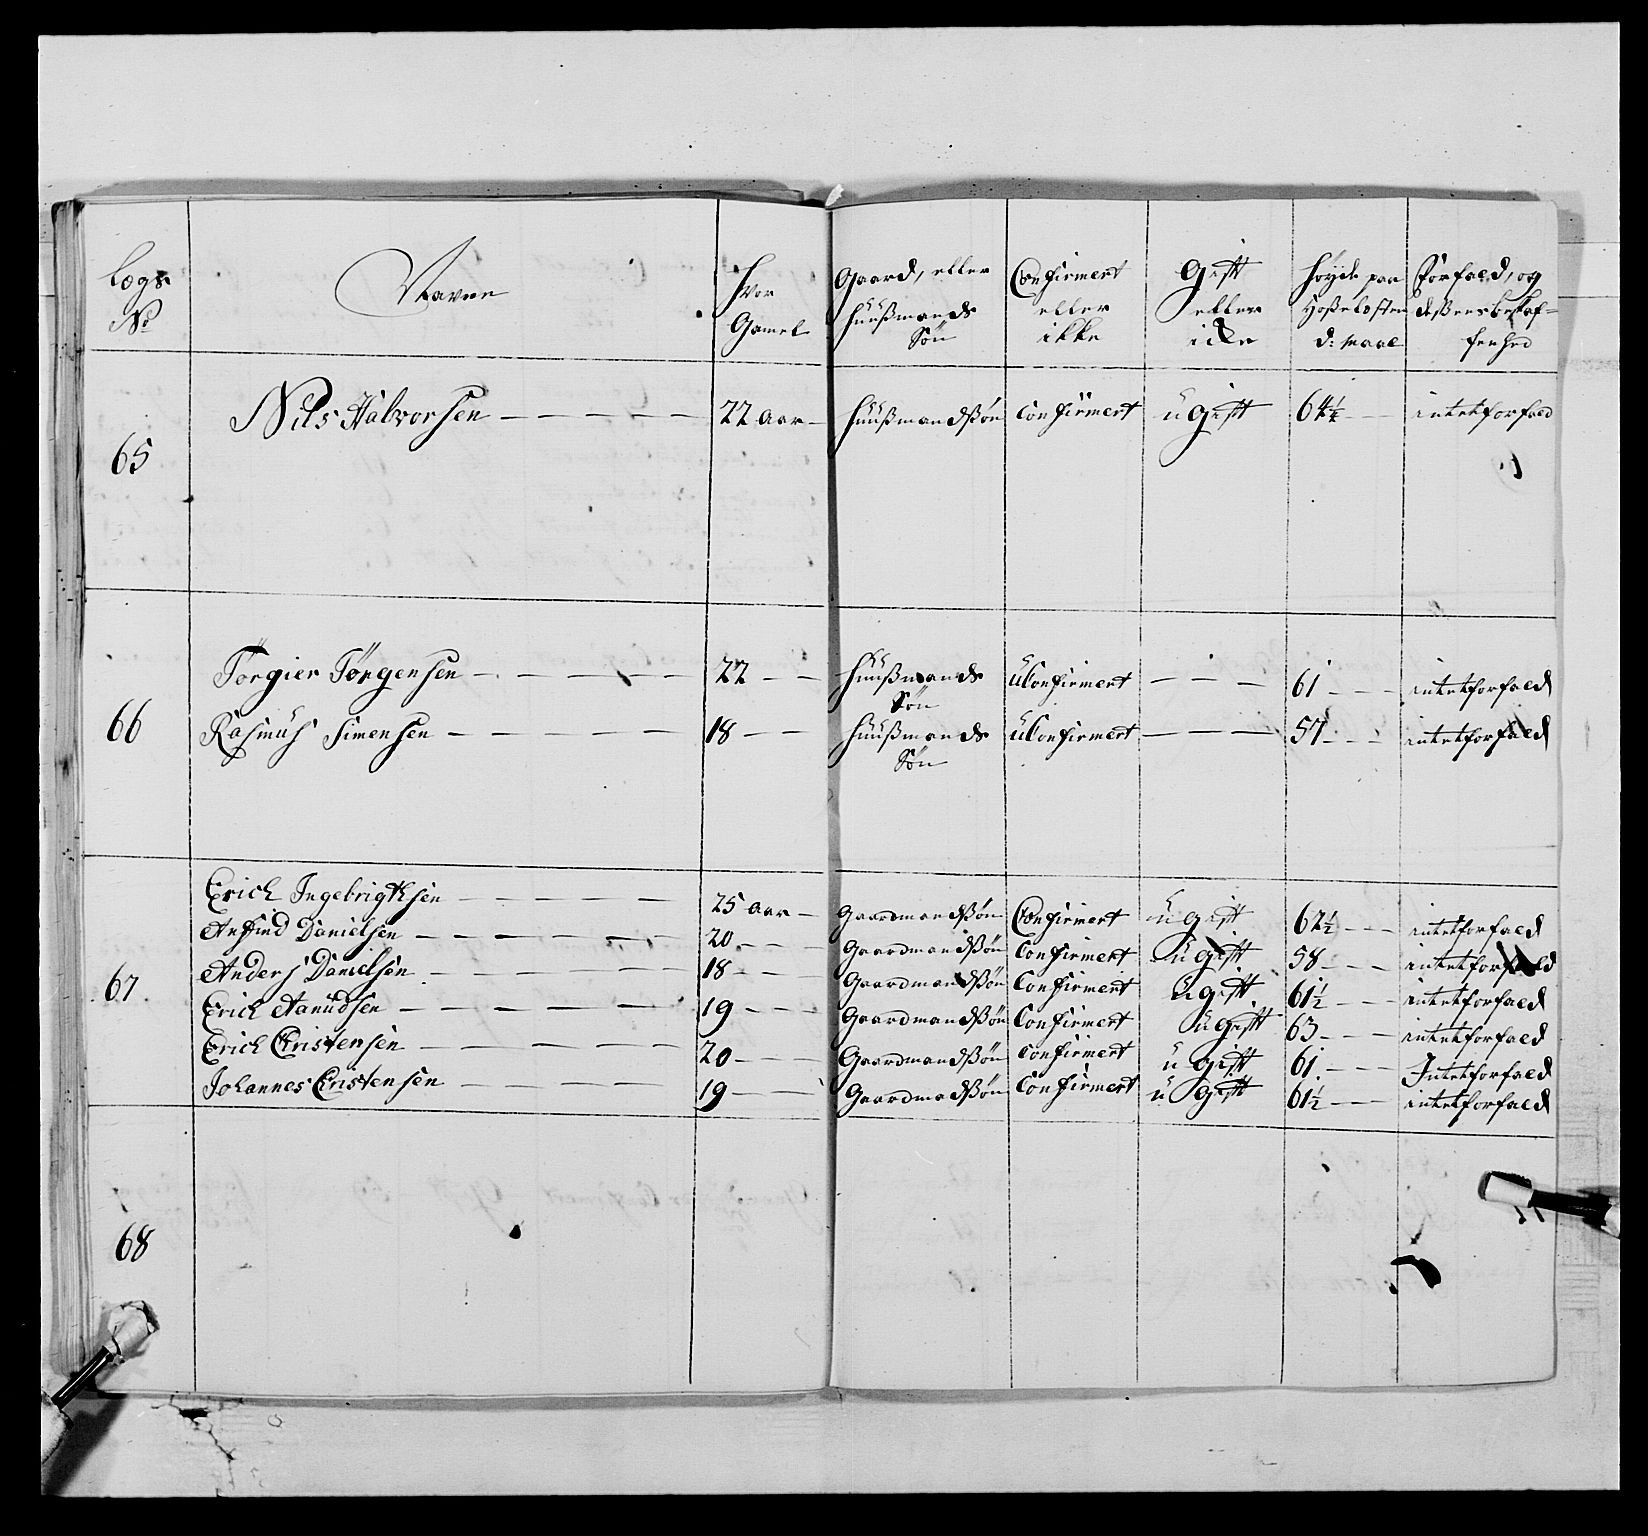 Lægs No | Navne | Hvor Gamel | Gaard, eller Huusmands Søn | Confirmert eller ikke | Gift eller icke | Høyde paa Hoseløsten d: Maal | Forfald, og deßens beskaf=fenhed
65 | Nils Halvorsen | 22 aar | Huusmandssøn | Confirmert | ugift | 64¼ | intet forfald
66 | Torgier Jørgensen | 22 | Huusmands Søn | uConfirmert | — — — | 61 | intet forfald
Rasmus Simensen | 18 | Huusmands Søn | uConfirmert | — — — | 57 | intet forfald
67 | Erich Ingebrigtsen | 25 aar | Gaardmandssøn | Confirmert | ugift | 62½ | intet forfald
Anfind Danielsen | 20 | Gaardmandssøn | Confirmert | ugift | 58 | intet forfald
Anders Danielsen | 18 | Gaardmandssøn | Confirmert | ugift | 61½ | intet forfald
Erich Aamudsen | 19 | Gaardmandssøn | Confirmert | ugift | 63 | intet forfald
Erich Cristensen | 20 | Gaardmandssøn | Confirmert | ugift | 61 | Intet forfald
Johannes Cristensen | 19 | Gaardmadssøn | Confirmert | ugift | 61½ | intet forfald
68